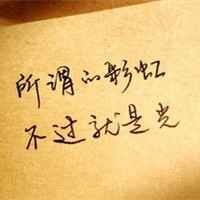 所谓的彩虹
不过就是光